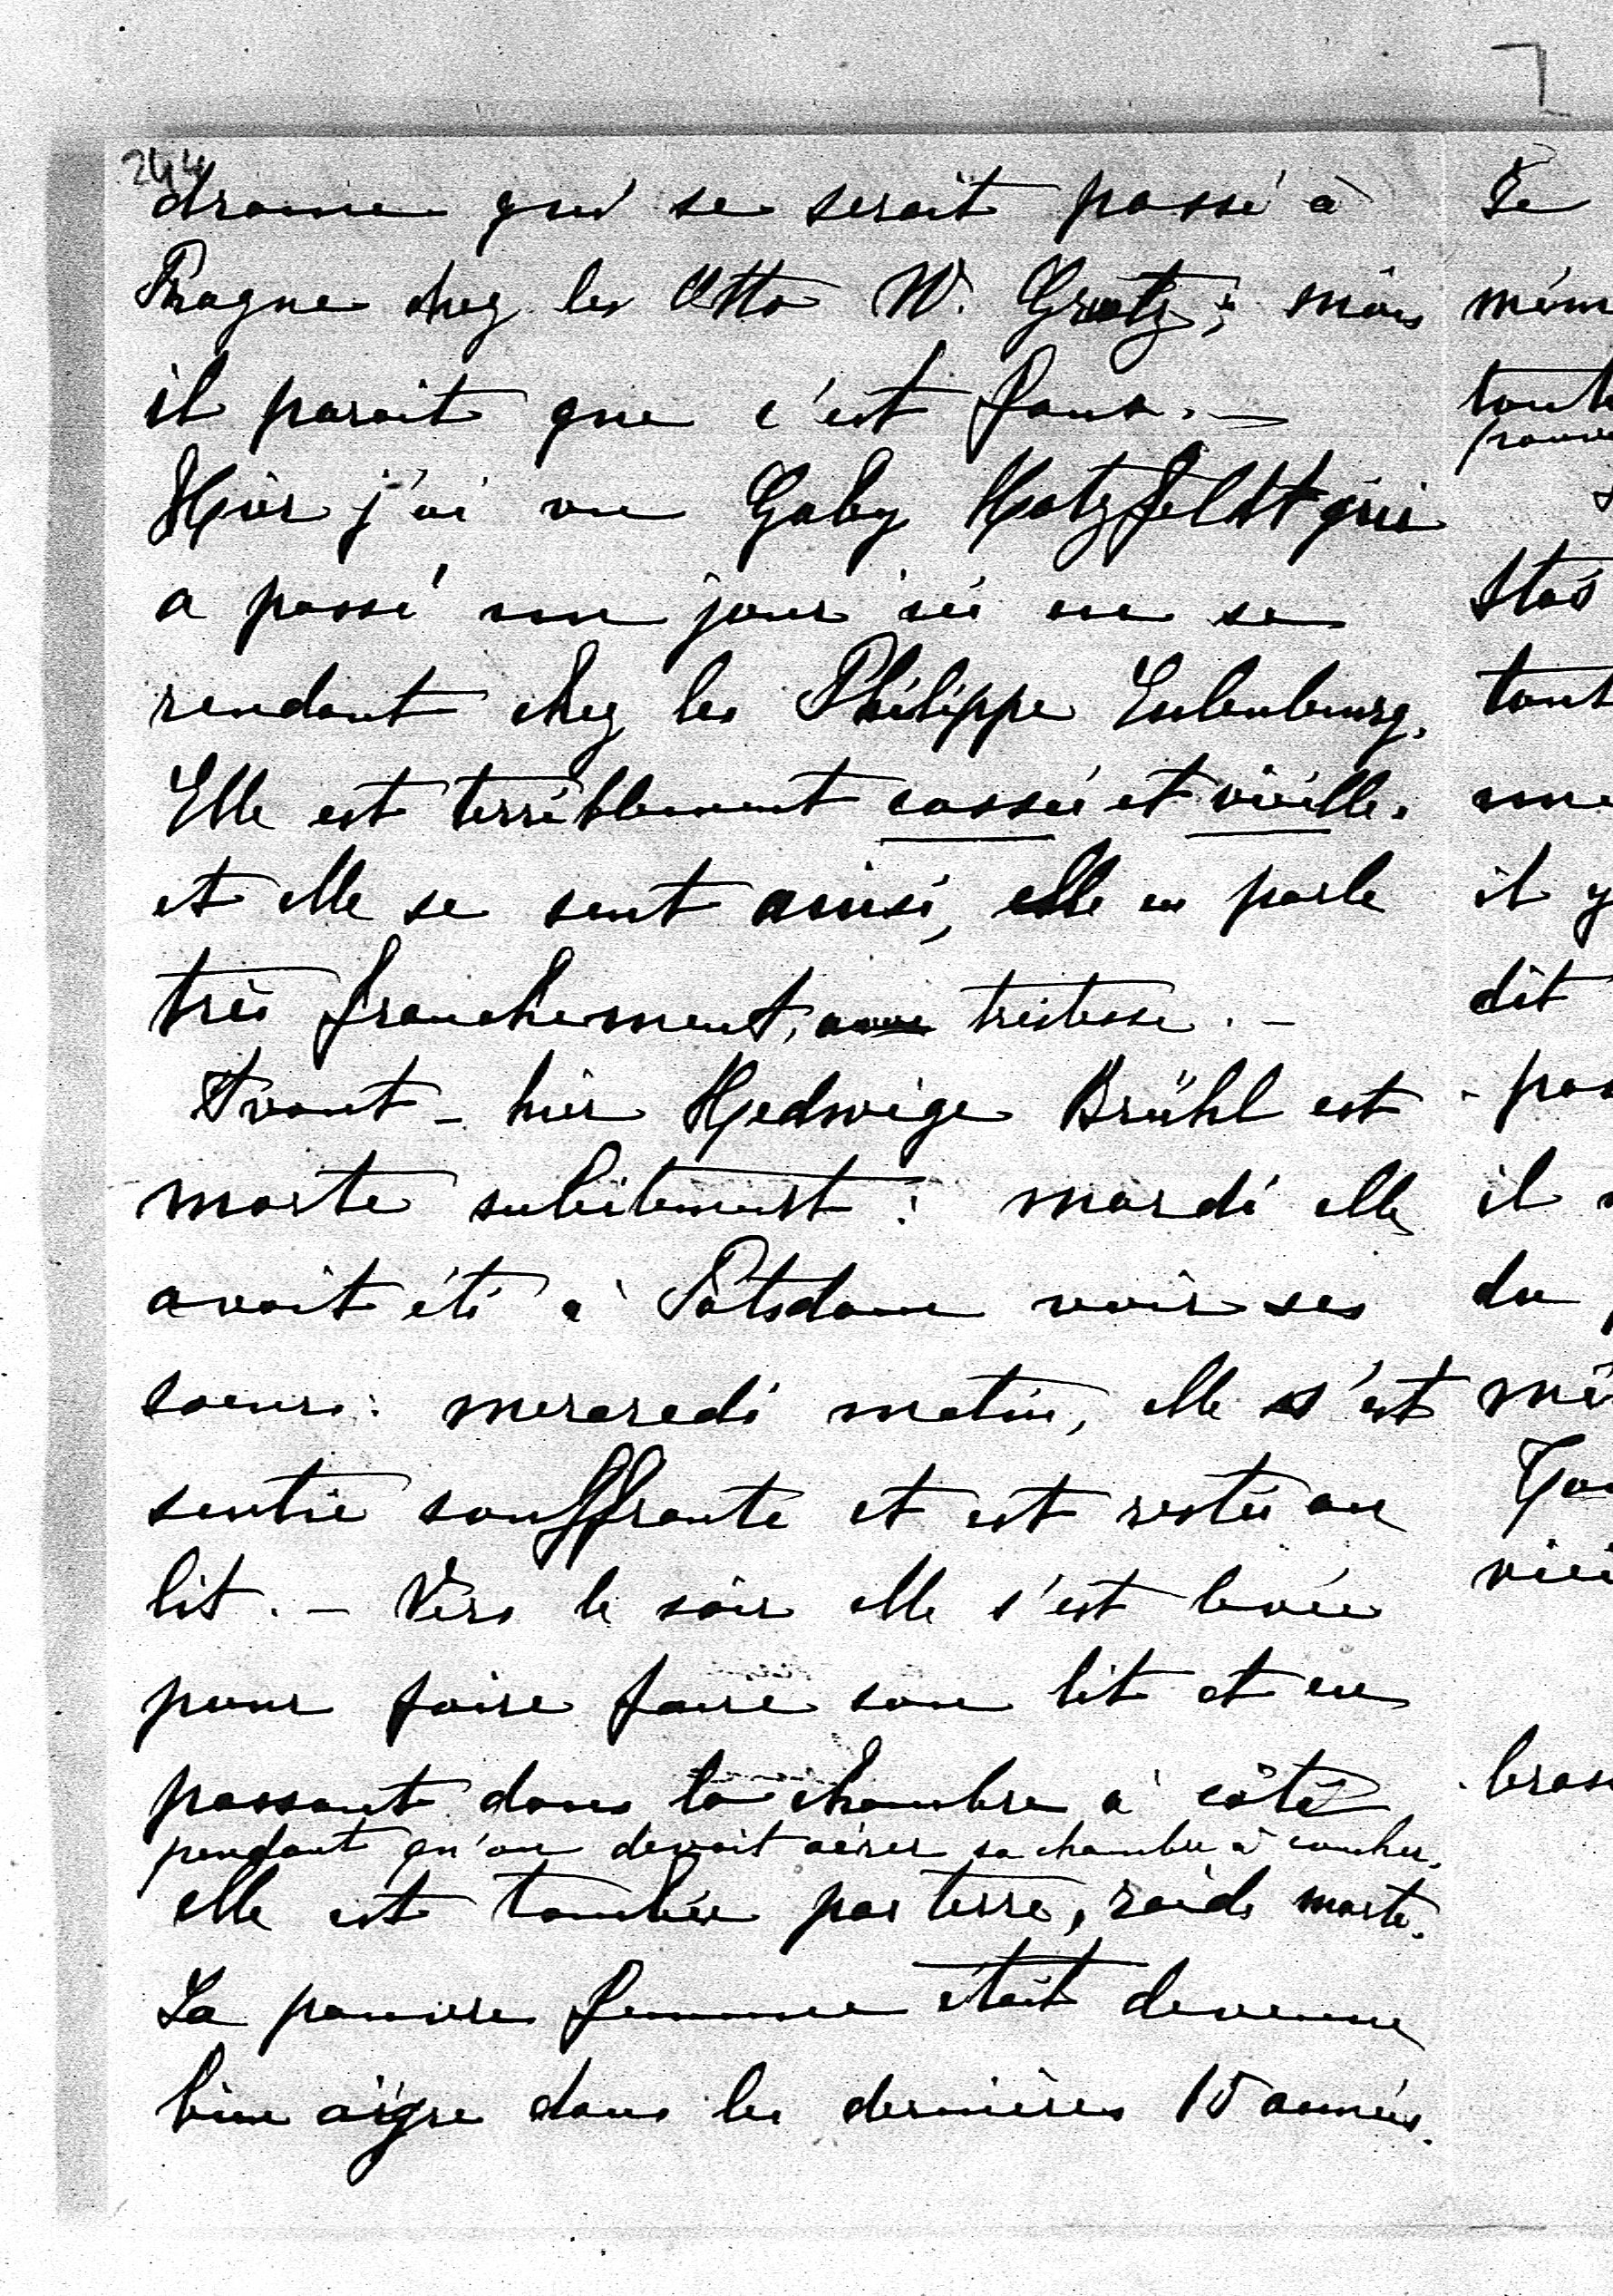 244
drame qui se serait passé à
Prague chez les Otto W. Gratz; mais
il parait que c'est faux. —
Hier j'ai vu Gaby Hatzfeldt qui
a passé un jour ici en se
rendant chez les Philippe Eulenburg.
Elle est terriblement cassée et vieille.
et elle se sent ainsi, elle en parle
très franchement, avec tristesse. —
Avant-hier Hedwige Brühl est
morte subitement: mardi elle
avait été à Potsdam voir ses
soeurs: mercredi matin, elle s'est
sentie souffrante et est restée au
lit. — Vers le soir elle s'est levée
pour faire faire son lit et en
passant dans la chambre à côté
pendant qu'on devait aérer sa chambre à coucher.
elle est tombée par terre, raide morte.
La pauvre femme était devenue
bien aigre dans les dernières 15 années.
Le
mêm
tout
pauv
Stas
tout
une
il y
dit
pas
il
du
mê
Gou
viei
bras